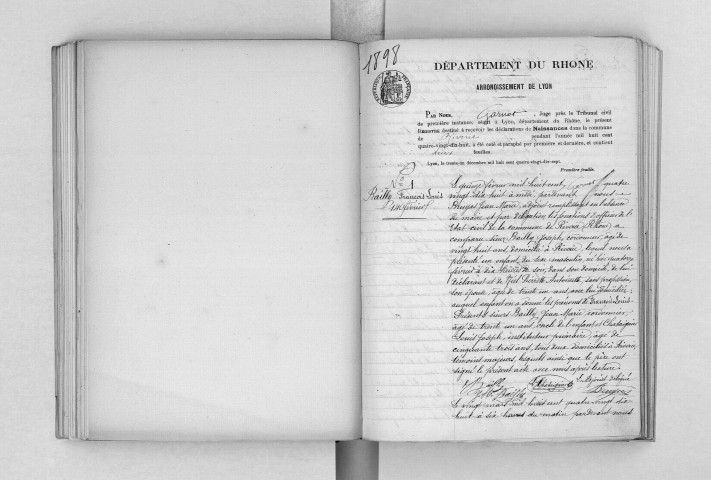 1898
DÉPARTEMENT DU RHONE
ARRONDISSEMENT DE LYON
PAR NOUS, Garnot, Juge près le Tribunal civil
de première instance, séant à Lyon, département du Rhône, le présent
REGISTRE destiné à recevoir les déclarations de Naissances dans la commune
de pendant l'année mil huit cent
quatre-vingt-dix-huit, a été coté et paraphé par première et dernière, et contient
feuilles.
Lyon, le trente-un décembre mil huit cent quatre-vingt-dix-sept.
Première feuille.
N° 1
Bailly François Louis
Le quinze février mil huit cent quatre
vingt dix huit à midi pardevant nous
Bruyas Jean Marie, adjoint remplissant en l'absence
du maire et par délégation les fonctions d'officier de l'
Etat civil de la commune de (Rhône) a
comparu sieur Bailly Joseph, cordonnier, âgé de
vingt huit ans, domicilié à lequel nous a
présenté un enfant du sexe masculin, né hier quatorze
février à dix heures du soir, dans son domicile, de lui
déclarant et de Antoinette, sans profession
son épouse, âgée de trente un ans, avec lui domiciliée,
auquel enfant on a donné les prénoms de François Louis
Présents sieurs Bailly Jean Marie, cordonnier,
âgé de trente un ans, oncle de l'enfant et Chataignon
Louis Joseph, instituteur primaire, âgé de
cinquante trois ans, tous deux domiciliés à
témoins majeurs, lesquels ainsi que le père ont
signé le présent acte avec nous après lecture.
Bailly Chataignon L'adjoint délégué
Bailly Bruyas
Le vingt huit cent quatre vingt dix
huit à dix heures du matin pardevant nous